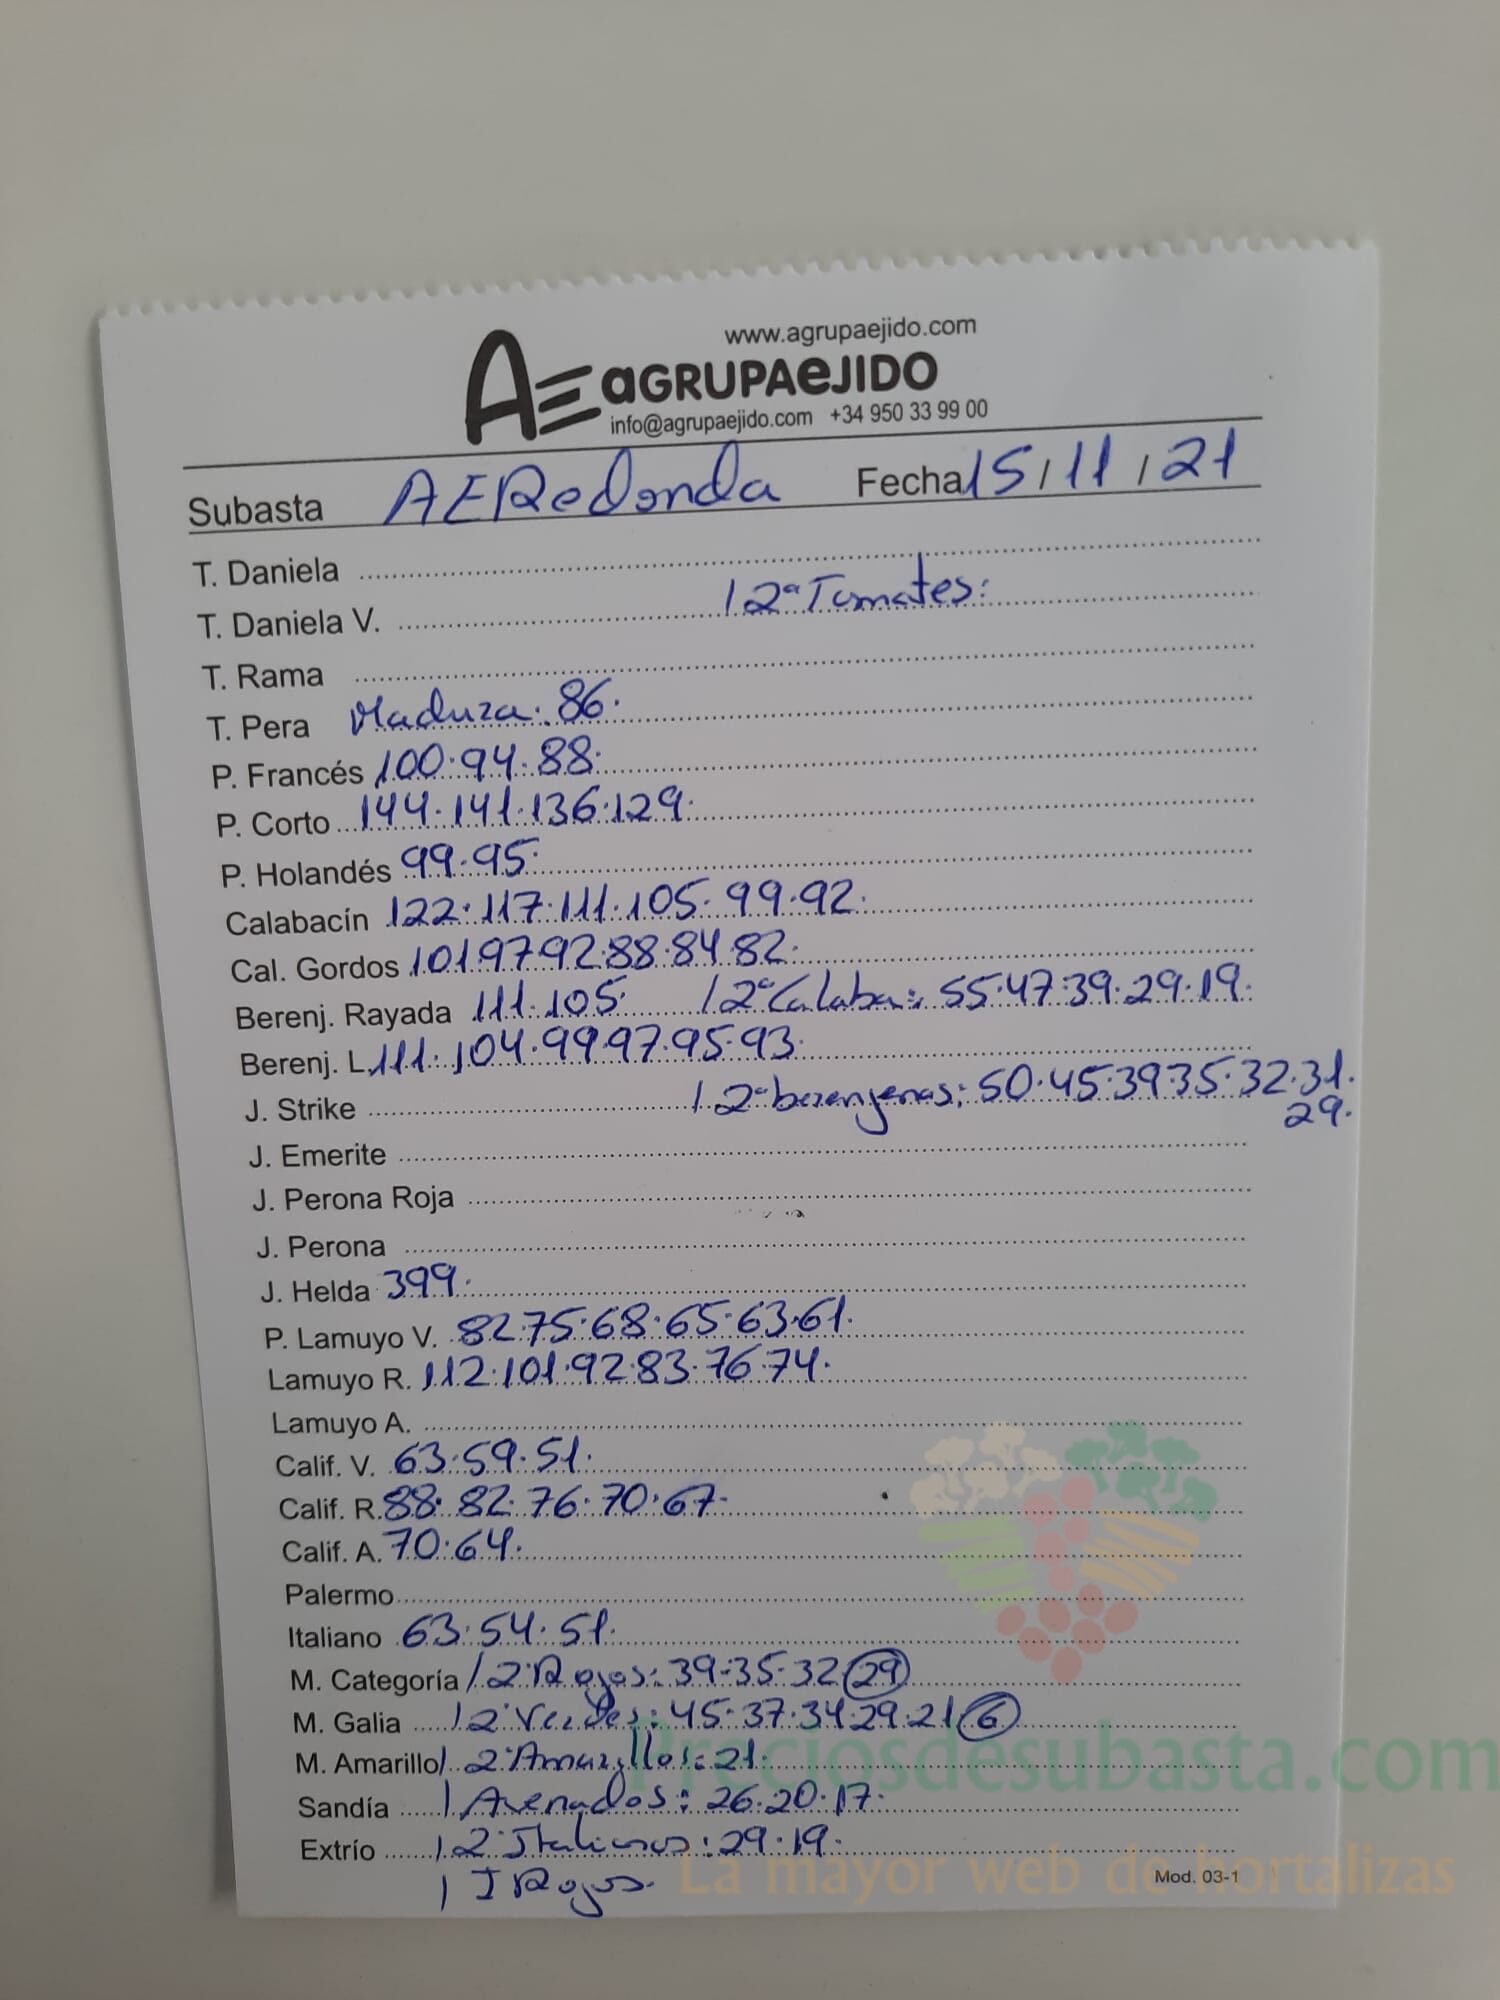 www.agrupaejido.com
AE aGRUPAeJIDO
info@agrupaejido.com +34 950 33 99 00
Subasta AERedonda Fecha 15/11/21
T. Daniela
T. Daniela V. / 2ª Tomates:
T. Rama
T. Pera Madura. 86.
P. Francés 100. 94. 88.
P. Corto 144. 141. 136. 129.
P. Holandés 99. 95.
Calabacín 122. 117. 111. 105. 99. 92.
Cal. Gordos 101 97 92. 88. 84. 82.
Berenj. Rayada 111. 105. / 2ª Calaba: 55. 47. 39. 29. 19.
Berenj. L. 111. 104. 99. 97. 95. 93.
J. Strike / 2ª berenjenas: 50. 45. 39. 35. 32. 31.
29.
J. Emerite
J. Perona Roja
J. Perona
J. Helda 399.
P. Lamuyo V. 82. 75. 68. 65. 63. 61.
Lamuyo R. 112. 101. 92. 83. 76. 74.
Lamuyo A.
Calif. V. 63. 59. 51.
Calif. R. 88. 82. 76. 70. 67.
Calif. A. 70. 64.
Palermo
Italiano 63. 54. 51.
M. Categoría / 2ª Rojos: 39. 35. 32 29
M. Galia / 2ª Verdes: 45. 37. 34. 29. 21 6
M. Amarillo / 2ª Amaryllos: 21.
Preciosdesubasta.com
Sandía / Asenados: 26. 20. 17.
Extrío / 2ª Italianos: 29. 19.
La mayor web de hortalizas
/ J Rojos.
Mod. 03-1